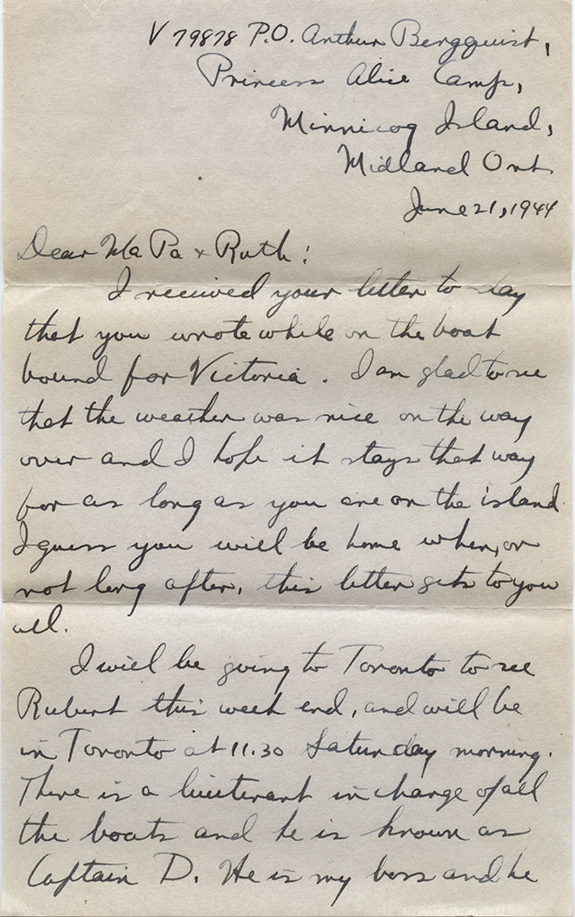 V 79878 P.O. Arthur Bergquist,
Princess Alice Camp,
Minnicog Island,
Midland Ont
June 21, 1944
Dear Ma Pa & Ruth:
I received your letter to-day
that you wrote while on the boat
bound for Victoria. I am glad to see
that the weather was nice on the way
over and I hope it stays that way
for as long as you are on the island.
I guess you will be home when, or
not long after, this letter gets to you
all.
I will be going to Toronto to see
Rubert this week end, and will be
in Toronto at 11.30 Saturday morning.
There is a lieutenant in charge of all
the boats and he is known as
Captain D. He is my boss and he